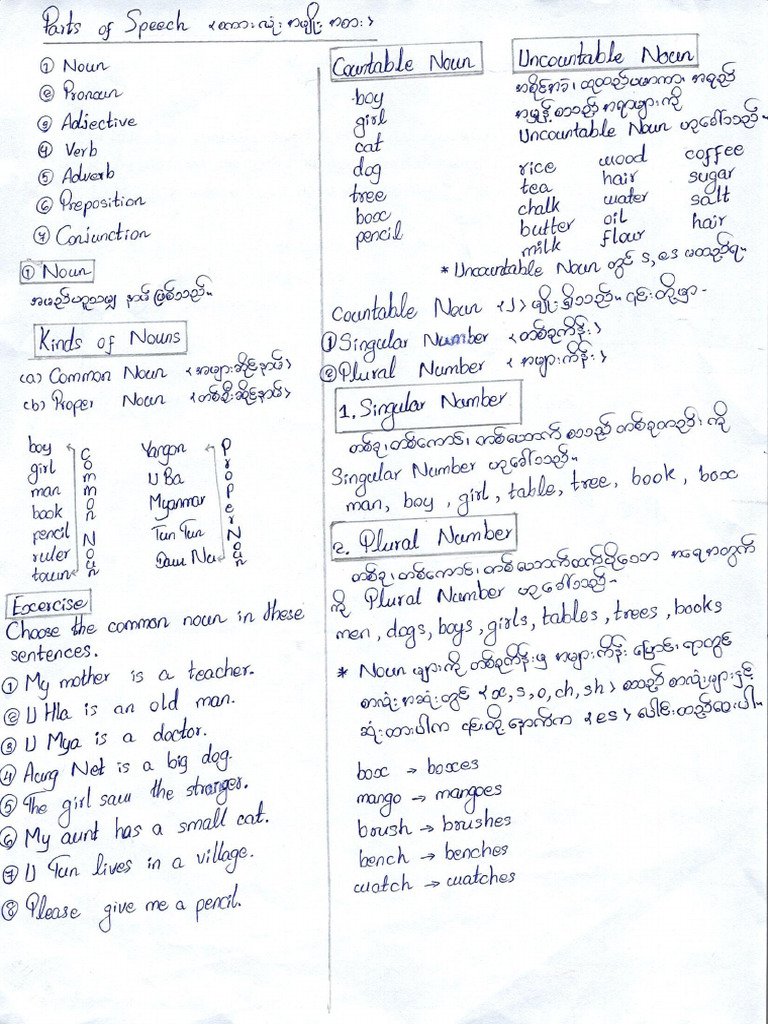 Parts of Speech <စကားလုံး အမျိုး အစား>
① Noun
② Pronoun
③ Adjective
④ Verb
⑤ Adverb
⑥ Preposition
⑦ Conjunction
① Noun
အမည်ဟူသမျှ နာမ် ဖြစ်သည်။
Kinds of Nouns
(a) Common Noun <အများဆိုင်နာမ်>
(b) Proper Noun <တစ်ဦးဆိုင်နာမ်>
boy
girl
man
book
pencil
ruler
town
Common Noun
Yangon
U Ba
Myanmar
Tun Tun
Daw Nu
Proper Noun
Excercise
Choose the common noun in these
sentences.
① My mother is a teacher.
② U Hla is an old man.
③ U Mya is a doctor.
④ Aung Net is a big dog.
⑤ The girl saw the stranger.
⑥ My aunt has a small cat.
⑦ U Tun lives in a village.
⑧ Please give me a pencil.
Countable Noun
boy
girl
cat
dog
tree
box
pencil
Uncountable Noun
အစိုင်အခဲ၊ ထုထည်ပမာဏ၊ အရည်
အမှုန့် စသည် အရာများကို
Uncountable Noun ဟုခေါ်သည်။
rice wood coffee
tea hair sugar
chalk water salt
butter oil hair
milk flour
* Uncountable Noun တွင် s, es မထည့်ရ။
Countable Noun <၂> မျိုးရှိသည်။ ၎င်းတို့မှာ-
① Singular Number <တစ်ခုကိန်း>
② Plural Number <အများကိန်း>
1. Singular Number
တစ်ခု၊ တစ်ကောင်၊ တစ်ယောက် စသည် တစ်ခုတည်း ကို
Singular Number ဟုခေါ်သည်။
man, boy, girl, table, tree, book, box
2. Plural Number
တစ်ခု၊ တစ်ကောင်၊ တစ်ယောက်ထက်ပိုသော အရေအတွက်
ကို Plural Number ဟုခေါ်သည်။
men, dogs, boys, girls, tables, trees, books
* Noun များကို တစ်ခုကိန်းမှ အများကိန်း ပြောင်းရာတွင်
စာလုံး အဆုံးတွင် <x, s, o, ch, sh> စသည် စာလုံးများနှင့်
ဆုံးထားပါက ၎င်းတို့ နောက်က <es> ပေါင်းထည့်ပေးပါ။
box → boxes
mango → mangoes
brush → brushes
bench → benches
watch → watches